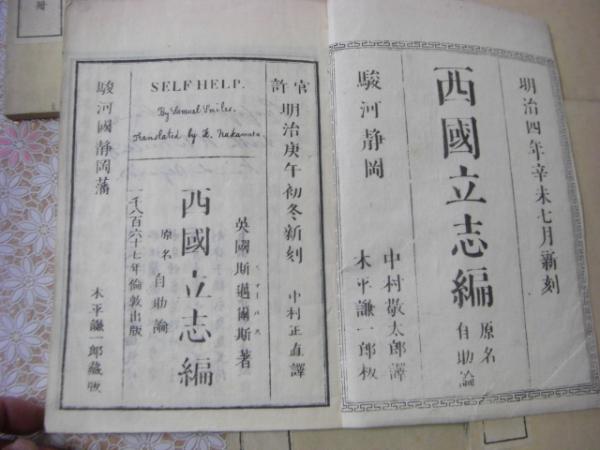 明治四年辛未七月新刻
西國立志編
原名
自助論
中村敬太郎譯
木平謙一郎板
駿河静岡
官許
明治庚午初冬新刻
中村正直譯
SELF HELP.
By Samuel Smiles.
Translated by K. Nakamura.
英國斯邁爾斯著
スマイルス
西國立志編
原名
自助論
一千八百六十七年倫敦出版
駿河國静岡藩
木平謙一郎藏版